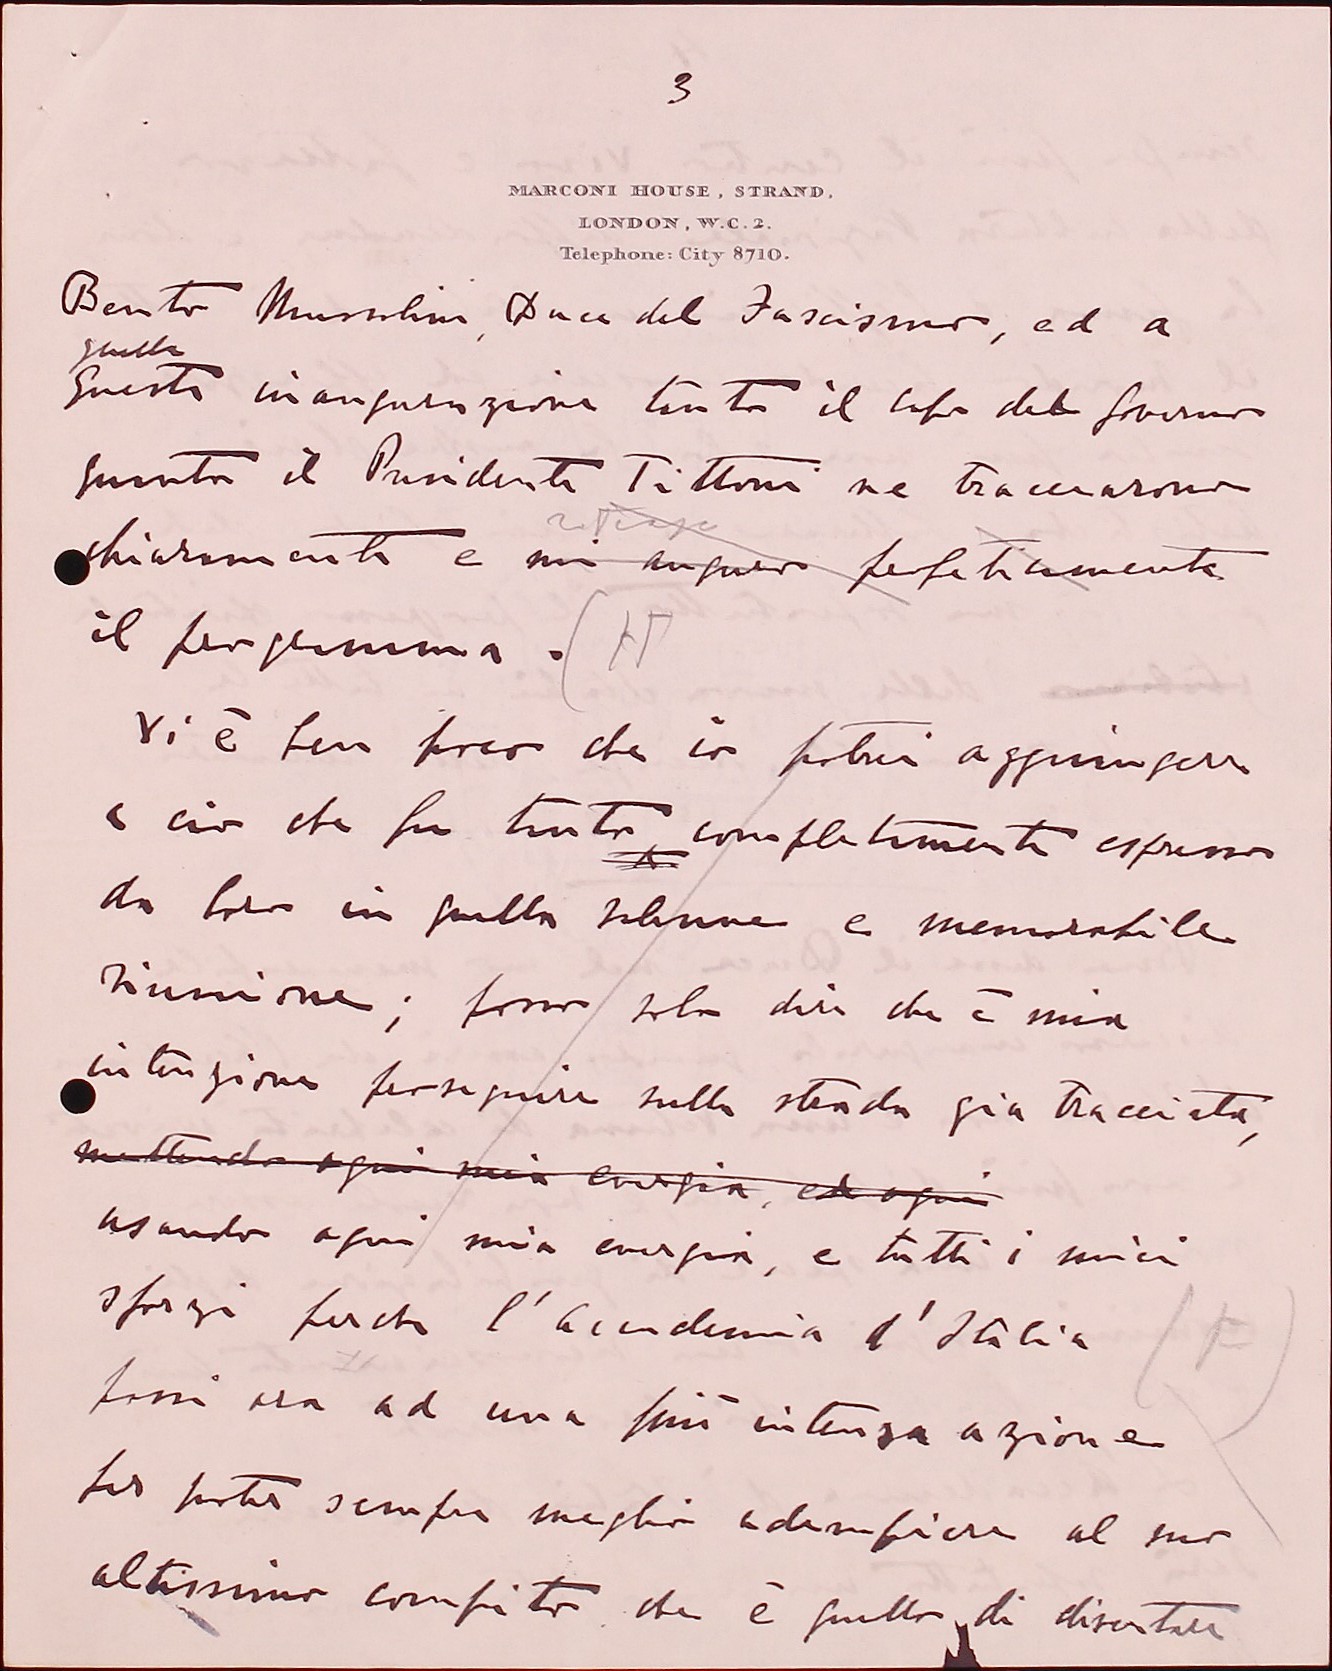 3
MARCONI HOUSE, STRAND,
LONDON, W.C.2.
Telephone: City 8710.
Benito Mussolini, Duce del Fascismo, ed a
quella
questa inaugurazione tanto il capo del Governo
quanto il Presidente Tittoni ne tracciarono
chiaramente e mi auguro perfettamente
il programma.
Vi è ben poco che io potrei aggiungere
a cio che fu tanto completamente espresso
da loro in quella solenne e memorabile
riunione; posso solo dire che è mia
intenzione perseguire sulla strada gia tracciata,
mettendo ogni mia energia, ed ogni
usando ogni mia energia, e tutti i miei
sforzi perche l'Accademia d'Italia
passi ora ad una più intensa azione
per poter sempre meglio adempiere al suo
altissimo compito che è quello di diventare